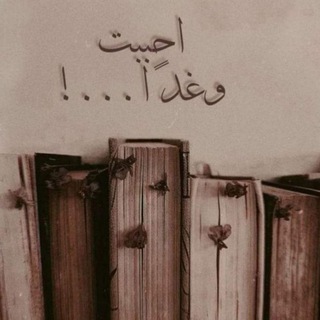 احببت
وغدًا....!